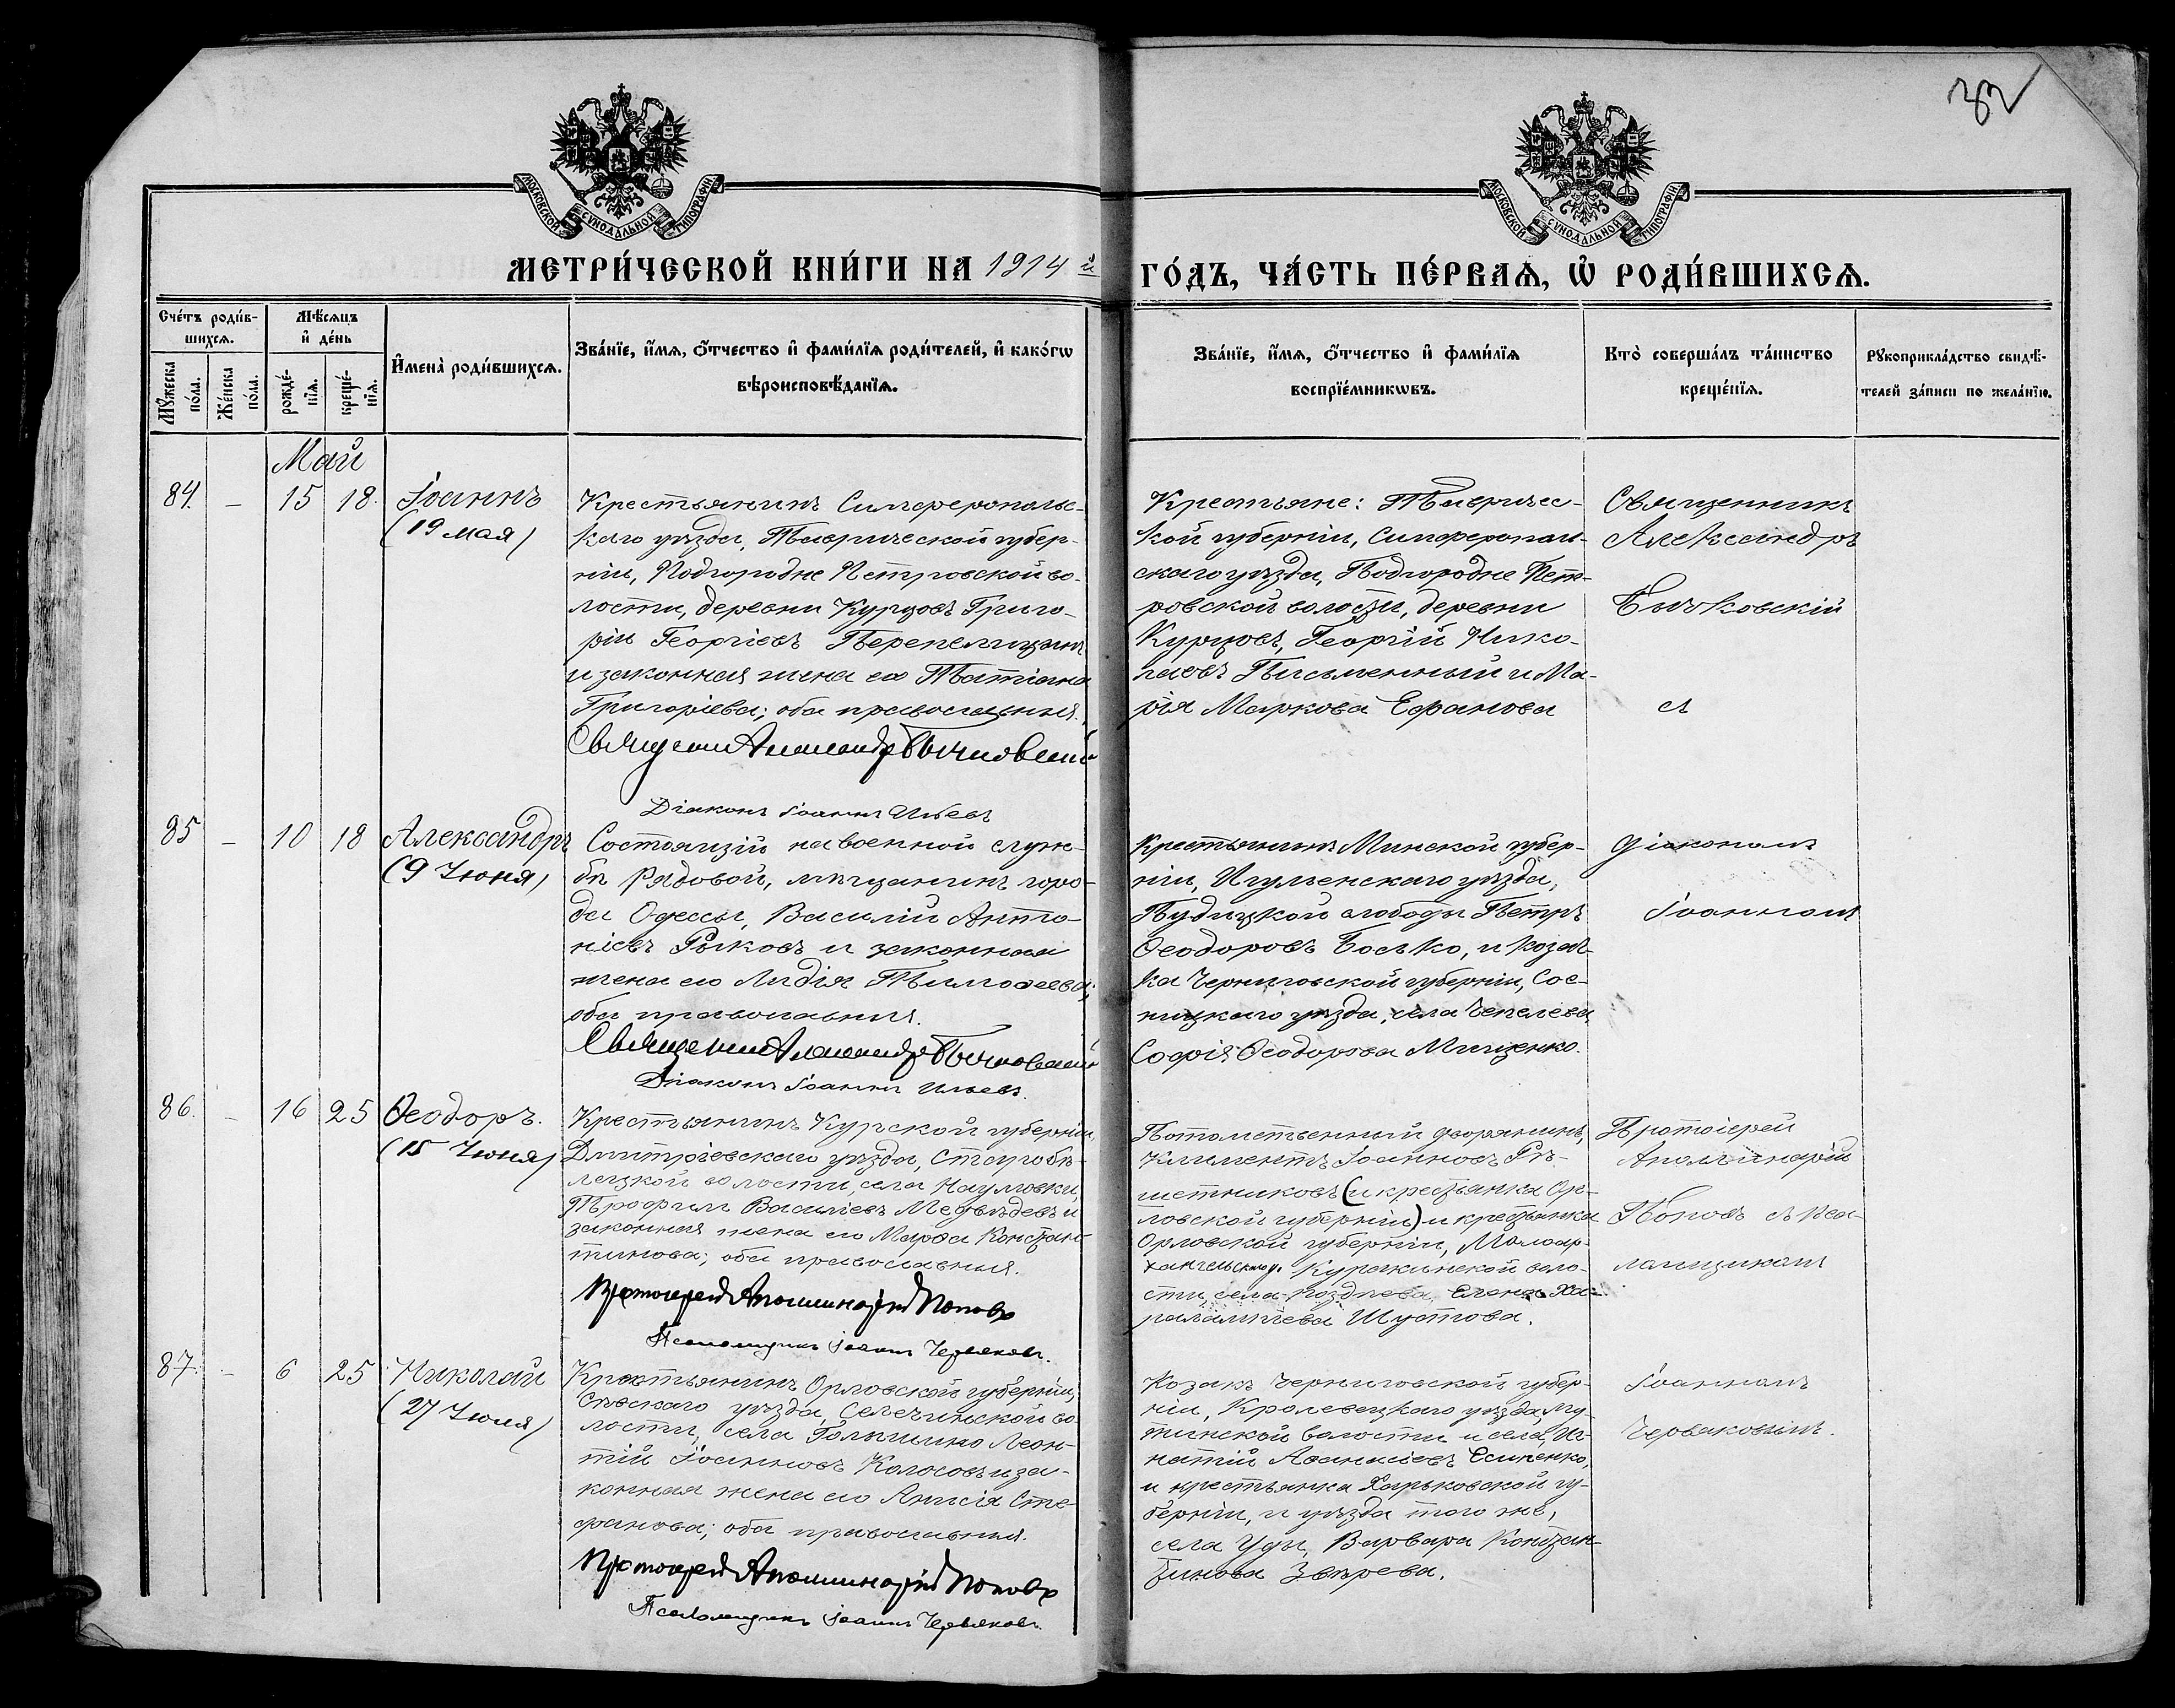 32
МОСКОВСКОЙ СѴНОДАЛЬНОЙ ТИПОГРАФІИ
МОСКОВСКОЙ СѴНОДАЛЬНОЙ ТИПОГРАФІИ
МЕТРИ́ЧЕСКОЙ КНИ́ГИ НА 1914 й
ГО́ДЪ, ЧА́СТЬ ПЕ́РВАѦ, Ѡ҆ РОДИ́ВШИХСѦ.
Сче́тъ роди́в-
шихсѧ.
Мꙋ́жеска по́ла.
Же́нска по́ла.
Мѣ́сѧцъ
и҆ де́нь
рожде́-
нїѧ.
креще́-
нїѧ.
И҆мена̀ роди́вшихсѧ.
Зва́нїе, и҆́мѧ, ѻ҆́тчество и҆ фами́лїѧ роди́телей, и҆ како́гѡ
вѣроисповѣ́данїѧ.
Зва́нїе, и҆́мѧ, ѻ҆́тчество и҆ фами́лїѧ
воспрїе́мникѡвъ.
Кто̀ соверша́лъ та́инство
креще́нїѧ.
Рꙋкоприкла́дство свидѣ́-
телей за́писи по жела́нїю.
Май
84. - 15 18. Іоаннъ
(19 мая)
Крестьянинъ Симферополь-
скаго уѣзда, Таврической губер-
ніи, Подгородне Петровской во-
лости, деревни Курцовъ Григо-
рій Георгіевъ Перепелицынъ
и законная жена его Татіана
Григоріева; оба православныя.
Священникъ Александръ Бычковскій
Діаконъ Іоаннъ Ильевъ
Крестьяне: Тавричес-
кой губерніи, Симферополь-
скаго уѣзда, Подгородне Пет-
ровской волости, деревни
Курцовъ, Георгій Нико-
лаевъ Письменный и Ма-
рія Маркова Ефанова
Священникъ
Александръ
Бычковскій
съ
85 - 10 18 Александръ
(9 Іюня)
Состоящій на военной служ-
бѣ рядовой, мѣщанинъ горо-
да Одессы, Василій Анто-
ніевъ Рыковъ и законная
жена его Лидія Тимофеева;
оба православныя.
Священникъ Александръ Бычковскій
Діаконъ Іоаннъ Ильевъ.
Крестьянинъ Минской губер-
ніи, Игуменскаго уѣзда,
слободы Петръ
Ѳеодоровъ Босько, и козач-
ка Черниговской губерніи, Сос-
ницкаго уѣзда, села Чепелева,
Софія Ѳеодорова Мищенко.
Діакономъ
Іоанномъ
86. - 16 25 Ѳеодоръ.
(15 Іюня)
Крестьянинъ Курской губерніи,
Дмитріевскаго уѣзда, Старобѣ-
лецкой волости, села Наумовки,
Трофимъ Василіевъ Медвѣдевъ и
законная жена его Марѳа Констан-
тинова; оба православныя.
Протоіерей Аполлинарій Поповъ
Псаломщикъ Іоаннъ Червяковъ.
Потомственный дворянинъ,
Климентъ Іоанновъ Рѣ-
шетниковъ (и крестьянка Ор-
ловской губерніи) и крестьянка
Орловской губерніи, Малоар-
хангельскаго у. Куракинской воло-
сти, села Позднева, Елена Ха-
ралампіева Шустова.
Протоіерей
Аполлинарій
Поповъ съ Пса-
ломщикомъ
87. - 6 25 Николай
(27 Іюля)
Крестьянинъ Орловской губерніи,
Сѣвскаго уѣзда, Селечинской во-
лости, села Голышино Леон-
тій Іоанновъ Колосовъ и за-
конная жена его Анисія Сте-
фанова; оба православныя.
Протоіерей Аполлинарій Поповъ
Псаломщикъ Іоаннъ Червяковъ.
Козакъ Черниговской губер-
ніи, Кролевецкаго уѣзда, Му-
тинской волости и села, Иг-
натій Аѳанасіевъ Есипенко,
и крестьянка Харьковской гу-
берніи, и уѣзда того же,
села Уды, Варвара Констан-
тинова Звѣрева.
Іоанномъ
Червяковымъ.